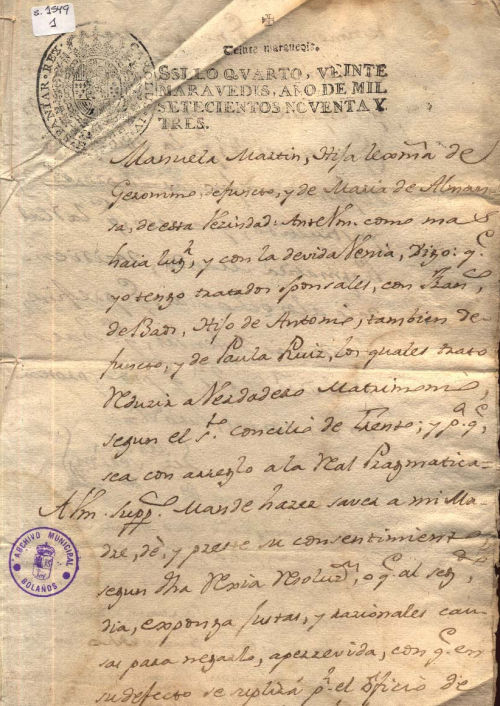 s. 1549
1
Veinte maravedis.
SSILLO QVARTO, VEINTE
MARAVEDIS, AÑO DE MIL
SETECIENTOS NOVENTA Y
TRES.
Manuela Martin, Hija lexma de
Geronimo, defuncto, y de Maria de Alman
sa, de esta Vezindad: Ante Vm. como mas
haia lugr, y con la devida Venia, Digo: q.e
yo tengo tratados sponsales, con Fran.co
de Baos, Hijo de Antonio, tambien de-
functo, y de Paula Ruiz, los quales trato
Reduzir a Verdadero Matrimonio,
segun el s.to concilio de Trento; y p.a q.e
sea con arreglo a la Real Pragmatica
A Vm. supp.co Mande hazer saver a mi Ma-
dre, dè, y preste su consentimiento
segun dha Rexia Resoluz.on, o q.e al seg.do
dia, exponga justas, y razionales cau-
sas para negarlo, apercevida, con q.e en
su defecto se suplirá p.r el oficio de
ARCHIVO MUNICIPAL
BOLAÑOS